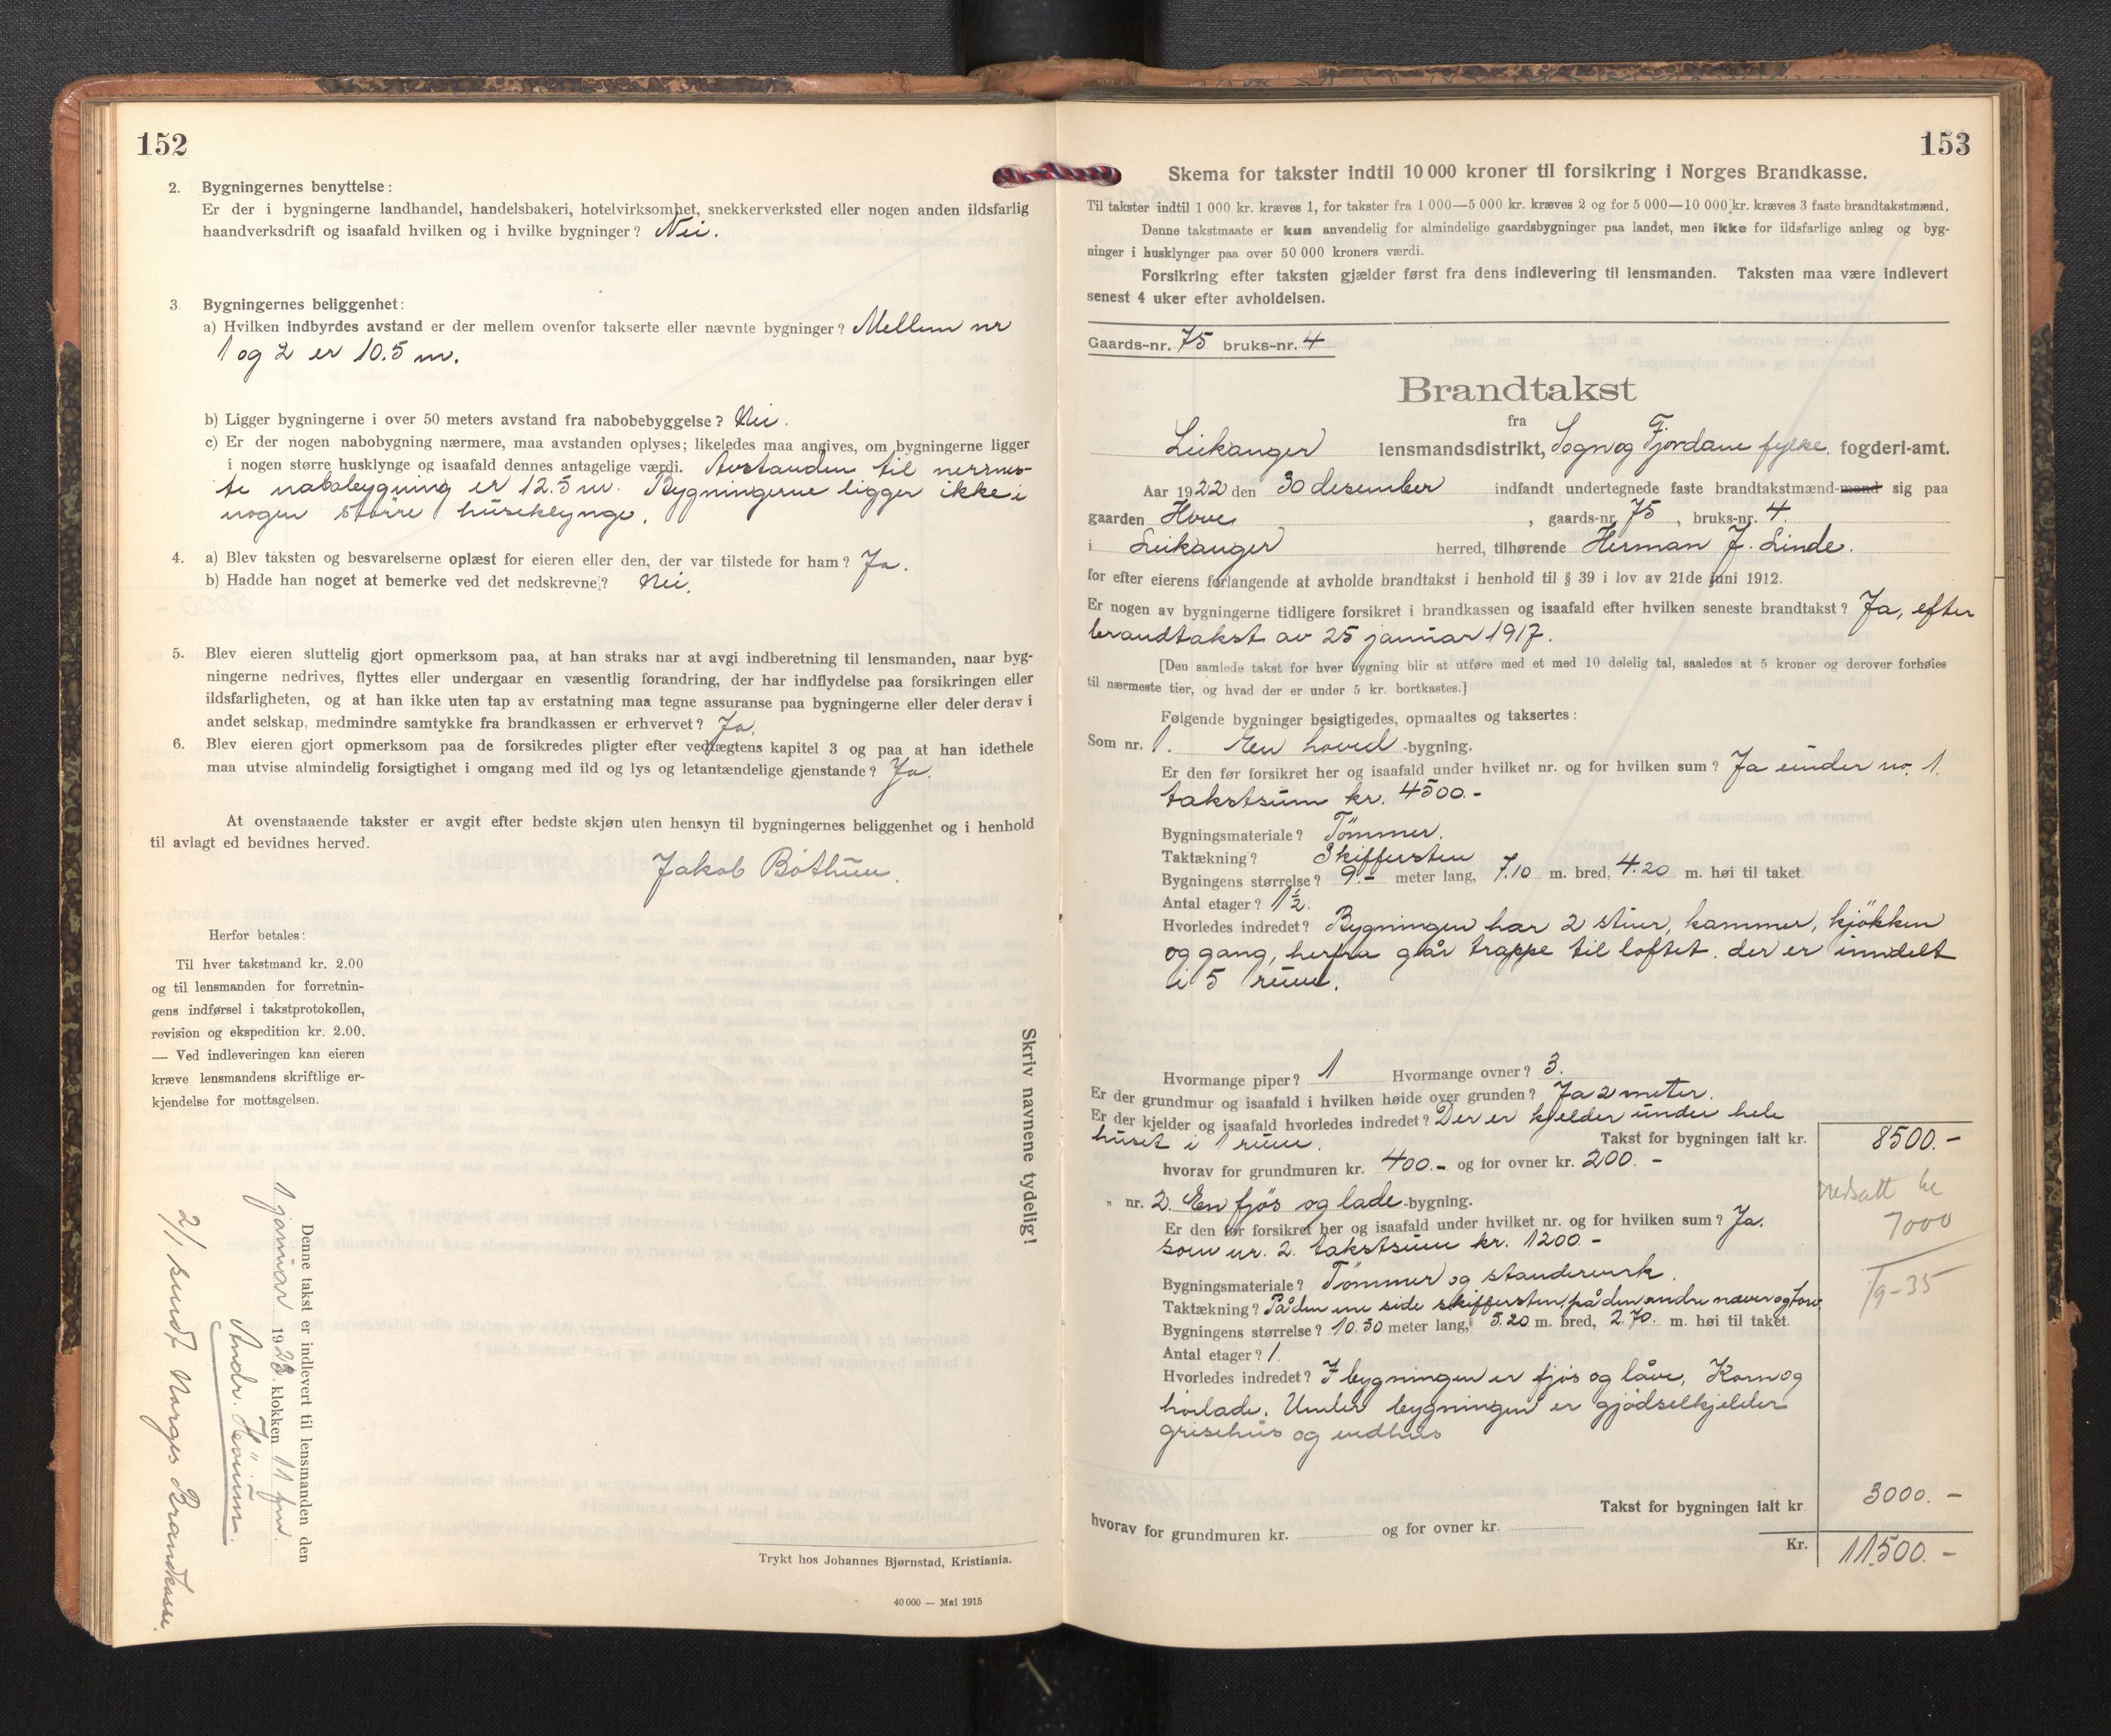 152
2. Bygningernes benyttelse:
Er der i bygningerne landhandel, handelsbakeri, hotelvirksomhet, snekkerverksted eller nogen anden ildsfarlig
haandverksdrift og isaafald hvilken og i hvilke bygninger? Nei.
3. Bygningernes beliggenhet:
a) Hvilken indbyrdes avstand er der mellem ovenfor takserte eller nævnte bygninger? Mellem nr
1 og 2 er 10.5 m.
b) Ligger bygningerne i over 50 meters avstand fra nabobebyggelse? Nei.
c) Er der nogen nabobygning nærmere, maa avstanden oplyses; likeledes maa angives, om bygningerne ligger
i nogen større husklynge og isaafald dennes antagelige værdi. Avstanden til nermes-
te nabobygning er 12.5 m. Bygningerne ligger ikke i
nogen större huseklynge.
4. a) Blev taksten og besvarelserne oplæst for eieren eller den, der var tilstede for ham? Ja.
b) Hadde han noget at bemerke ved det nedskrevne? Nei.
5. Blev eieren sluttelig gjort opmerksom paa, at han straks har at avgi indberetning til lensmanden, naar byg-
ningerne nedrives, flyttes eller undergaar en væsentlig forandring, der har indflydelse paa forsikringen eller
ildsfarligheten, og at han ikke uten tap av erstatning maa tegne assuranse paa bygningerne eller deler derav i
andet selskap, medmindre samtykke fra brandkassen er erhvervet? Ja.
6. Blev eieren gjort opmerksom paa de forsikredes pligter efter vedtægtens kapitel 3 og paa at han idethele
maa utvise almindelig forsigtighet i omgang med ild og lys og letantændelige gjenstande? Ja.
At ovenstaaende takster er avgit efter bedste skjøn uten hensyn til bygningernes beliggenhet og i henhold
til avlagt ed bevidnes herved.
Jakob Böthun.
Herfor betales:
Til hver takstmand kr. 2.00
og til lensmanden for forretnin-
gens indførsel i takstprotokollen,
revision og ekspedition kr. 2.00.
— Ved indleveringen kan eieren
kræve lensmandens skriftlige er-
kjendelse for mottagelsen.
Skriv navnene tydelig!
Denne takst er indlevert til lensmanden den
1 januar 1923 klokken 11 fm.
Andr.
2/1 sendt Norges Brandkasse.
Trykt hos Johannes Bjørnstad, Kristiania.
40 000 — Mai 1915
153
Skema for takster indtil 10 000 kroner til forsikring i Norges Brandkasse.
Til takster indtil 1 000 kr. kræves 1, for takster fra 1 000—5 000 kr. kræves 2 og for 5 000—10 000 kr. kræves 3 faste brandtakstmænd,
Denne takstmaate er kun anvendelig for almindelige gaardsbygninger paa landet, men ikke for ildsfarlige anlæg og byg-
ninger i husklynger paa over 50 000 kroners værdi.
Forsikring efter taksten gjælder først fra dens indlevering til lensmanden. Taksten maa være indlevert
senest 4 uker efter avholdelsen.
Gaards-nr. 75 bruks-nr. 4
Brandtakst
fra
Leikanger lensmandsdistrikt, Sogn og Fjordane fylke. fogderi-amt.
Aar 1922 den 30 desember indfandt undertegnede faste brandtakstmænd-mand sig paa
gaarden Hove, gaards-nr. 75, bruks-nr. 4.
i Leikanger herred, tilhørende Herman J. Linde.
for efter eierens forlangende at avholde brandtakst i henhold til § 39 i lov av 21de juni 1912.
Er nogen av bygningerne tidligere forsikret i brandkassen og isaafald efter hvilken seneste brandtakst? Ja, efter
brandtakst av 25 januar 1917.
[Den samlede takst for hver bygning blir at utføre med et med 10 delelig tal, saaledes at 5 kroner og derover forhøies
til nærmeste tier, og hvad der er under 5 kr. bortkastes.]
Følgende bygninger besigtigedes, opmaaltes og taksertes:
Som nr. 1. En hoved -bygning.
Er den før forsikret her og isaafald under hvilket nr. og for hvilken sum? Ja under no. 1.
takstsum kr. 4500.-
Bygningsmateriale? Tömmer.
Taktækning? Skiffersten
Bygningens størrelse? 9.- meter lang, 7.10 m. bred, 4.20 m. høi til taket.
Antal etager? 1½.
Hvorledes indredet? Bygningen har 2 stuer, kammer, kjökken
og gang, herfra går trappe til loftet. der er inndelt
i 5 rum.
Hvormange piper? 1 Hvormange ovner? 3.
Er der grundmur og isaafald i hvilken høide over grunden? Ja 2 meter.
Er der kjelder og isaafald hvorledes indredet? Der er kjelder under hele
huset i 1 rum. Takst for bygningen ialt kr. 8500.-
hvorav for grundmuren kr. 400.- og for ovner kr. 200.-
nedsatt
7000
1/9-35
" nr. 2. En fjös og lade -bygning.
Er den før forsikret her og isaafald under hvilket nr. og for hvilken sum? Ja.
som nr. 2. takstsum kr. 1200.-
Bygningsmateriale? Tömmer og standerverk.
Taktækning? På den ene side skiffersten, på den andre never og torv
Bygningens størrelse? 10.50 meter lang, 5.20 m. bred, 2.70. m. høi til taket.
Antal etager? 1.
Hvorledes indredet? I bygningen er fjös og låve, Korn og
höilade. Under bygningen er gjödselkjelder
grisehus og vedhus
Takst for bygningen ialt kr 3000.-
hvorav for grundmuren kr. og for ovner kr.
Kr. 11.500.-